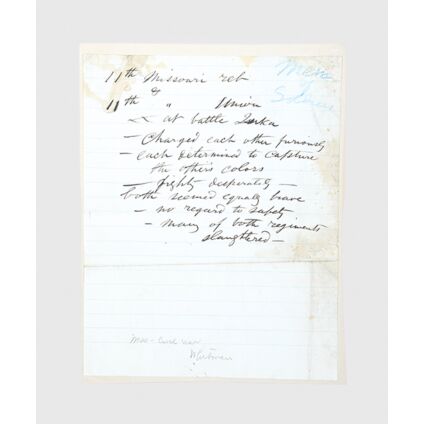 11th Missouri reb
&
11th " Union
at battle Iuka
— Charged each other furiously
— each determined to capture
the others colors
— fighty desperately —
both seemed equaly brave
— no regard to safety
— many of both regiments
slaughtered —
Civil war
Whitman